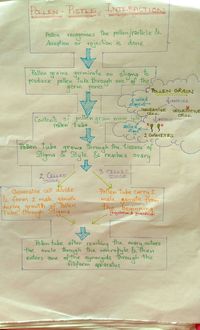 POLLEN - PISTIL INTERACTION
Pollen recognises the pollen particle &
decision of rejection is done
Pollen grains germinate on stigma to
produce pollen tube through one of the
germ pores
POLLEN GRAIN
2 celled
3 celled
GENERATIVE
CELL
VEGETATIVE
CELL
2 GAMETES
Contents of pollen grain move into
pollen tube
Pollen Tube grows through the tissues of
Stigma & Style & reaches ovary
2 CELLED
3 CELLED
Generative cell divide
& form 2 male gametes
during growth of Pollen
Tube through Stigma
Pollen Tube carry 2
male gametes from
the beginning
Pollen tube after reaching the ovary enters
the ovule through the micropyle & then
enters one of the synergids through the
filiform apparatus